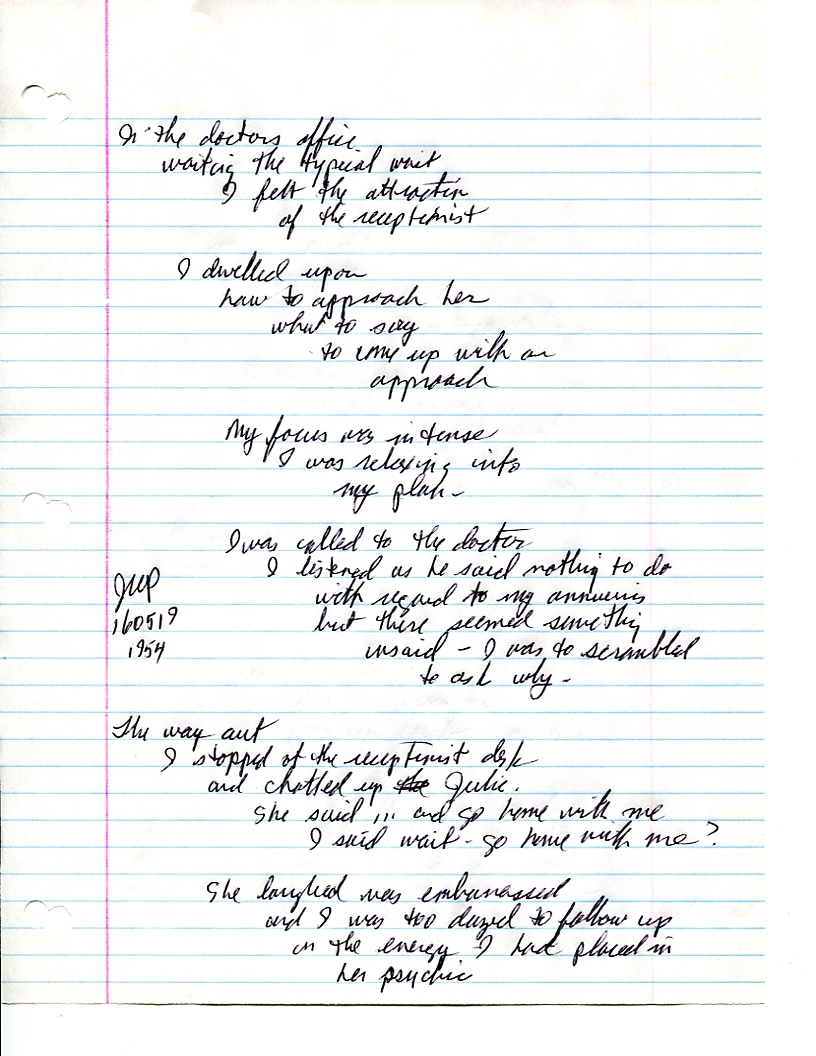 In the doctors office
waiting the typical wait
I felt the attraction
of the receptionist
I dwelled upon
how to approach her
what to say
to come up with an
approach
My focus was intense
I was relaxing into
my plan -
I was called to the doctor
I listened as he said nothing to do
with regard to my
but there seemed something
unsaid - I was to scrambled
to ask why -
160519
1954
The way out
I stopped at the receptionist desk
and chatted up the Julie.
She said ... and go home with me
I said wait - go home with me?
She laughed was embarrassed
and I was too dazed to follow up
on the energy I had placed in
her psychic